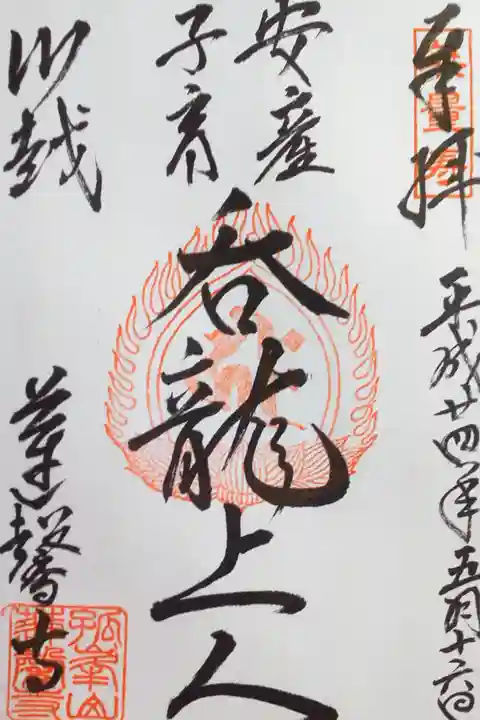 奉拝
平成廿四年五月十六日
安産
子育
呑龍上人
川越
蓮馨寺